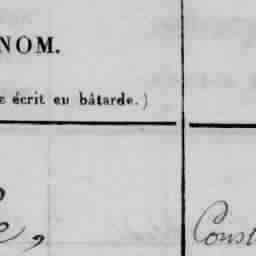 NOM.
écrit en bâtarde.)
Const